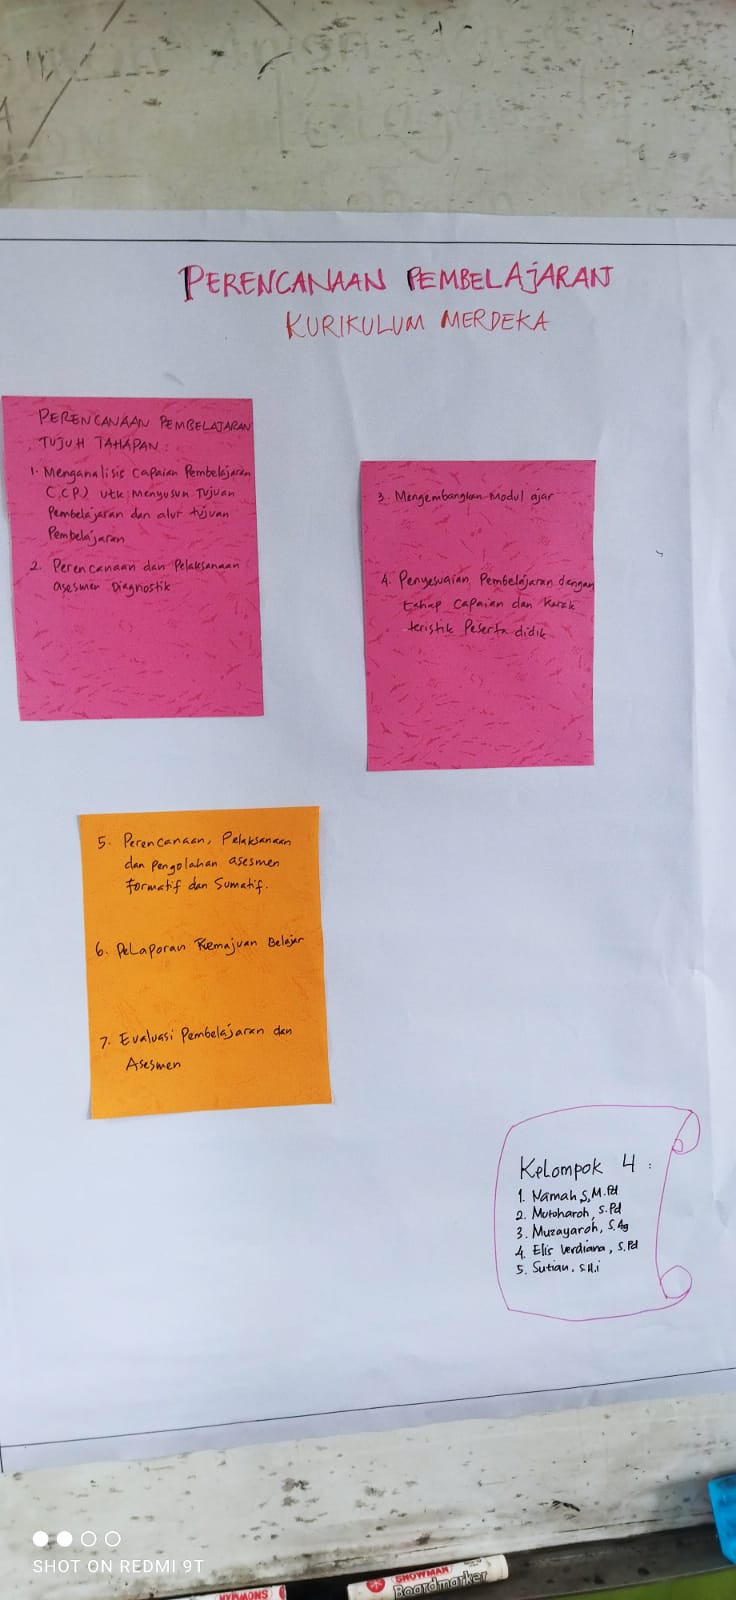 PERENCANAAN PEMBELAJARAN
KURIKULUM MERDEKA
PERENCANAAN PEMBELAJARAN
TUJUH TAHAPAN :
1. Menganalisis Capaian Pembelajaran
(CP) utk menyusun Tujuan
Pembelajaran dan alur tujuan
Pembelajaran
2. Perencanaan dan Pelaksanaan
asesmen Diagnostik
3. Mengembangkan modul ajar
4. Penyesuaian Pembelajaran dengan
tahap capaian dan karak
teristik Peserta didik
5. Perencanaan, Pelaksanaan
dan pengolahan asesmen
formatif dan Sumatif.
6. Pelaporan Kemajuan Belajar
7. Evaluasi Pembelajaran dan
Asesmen
Kelompok 4 :
1. Namah S, M.Pd
2. Mutoharoh, S.Pd
3. Muzayaroh, S.Ag
4. Elis Verdiana, S.Pd
5. Sutian, S.H.i
SHOT ON REDMI 9T
SNOWMAN
Boardmarker